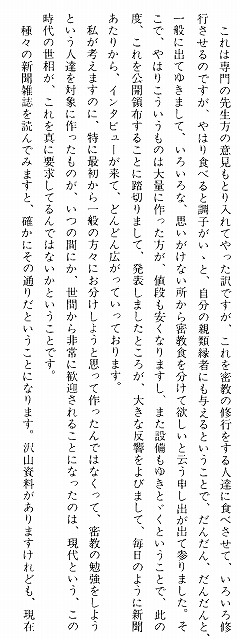 これは専門の先生方の意見もとり入れてやった訳ですが、これを密教の修行をする人達に食べさせて、いろいろ修
行させるのですが、やはり食べると調子がいゝと、自分の親類縁者にも与えるということで、だんだん、だんだんと
一般に出てゆきまして、いろいろな、思いがけない所から密教食を分けて欲しいと云う申し出が出て参りました。そ
こで、やはりこういうものは大量に作った方が、値段も安くなりますし、また設備もゆきとゞくということで、此の
度、これを公開領布することに踏切りまして、発表しましたところが、大きな反響をよびまして、毎日のように新聞
あたりから、インタビューが来て、どんどん広がっていっております。
私が考えますのに、特に最初から一般の方々にお分けしようと思って作ったんではなくって、密教の勉強をしよう
という人達を対象に作ったものが、いつの間にか、世間から非常に歓迎されることになったのは、現代という、この
時代の世相が、これを真に要求してるんではないかということです。
種々の新聞雑誌を読んでみますと、確かにその通りだということになります。沢山資料がありますけれども、現在